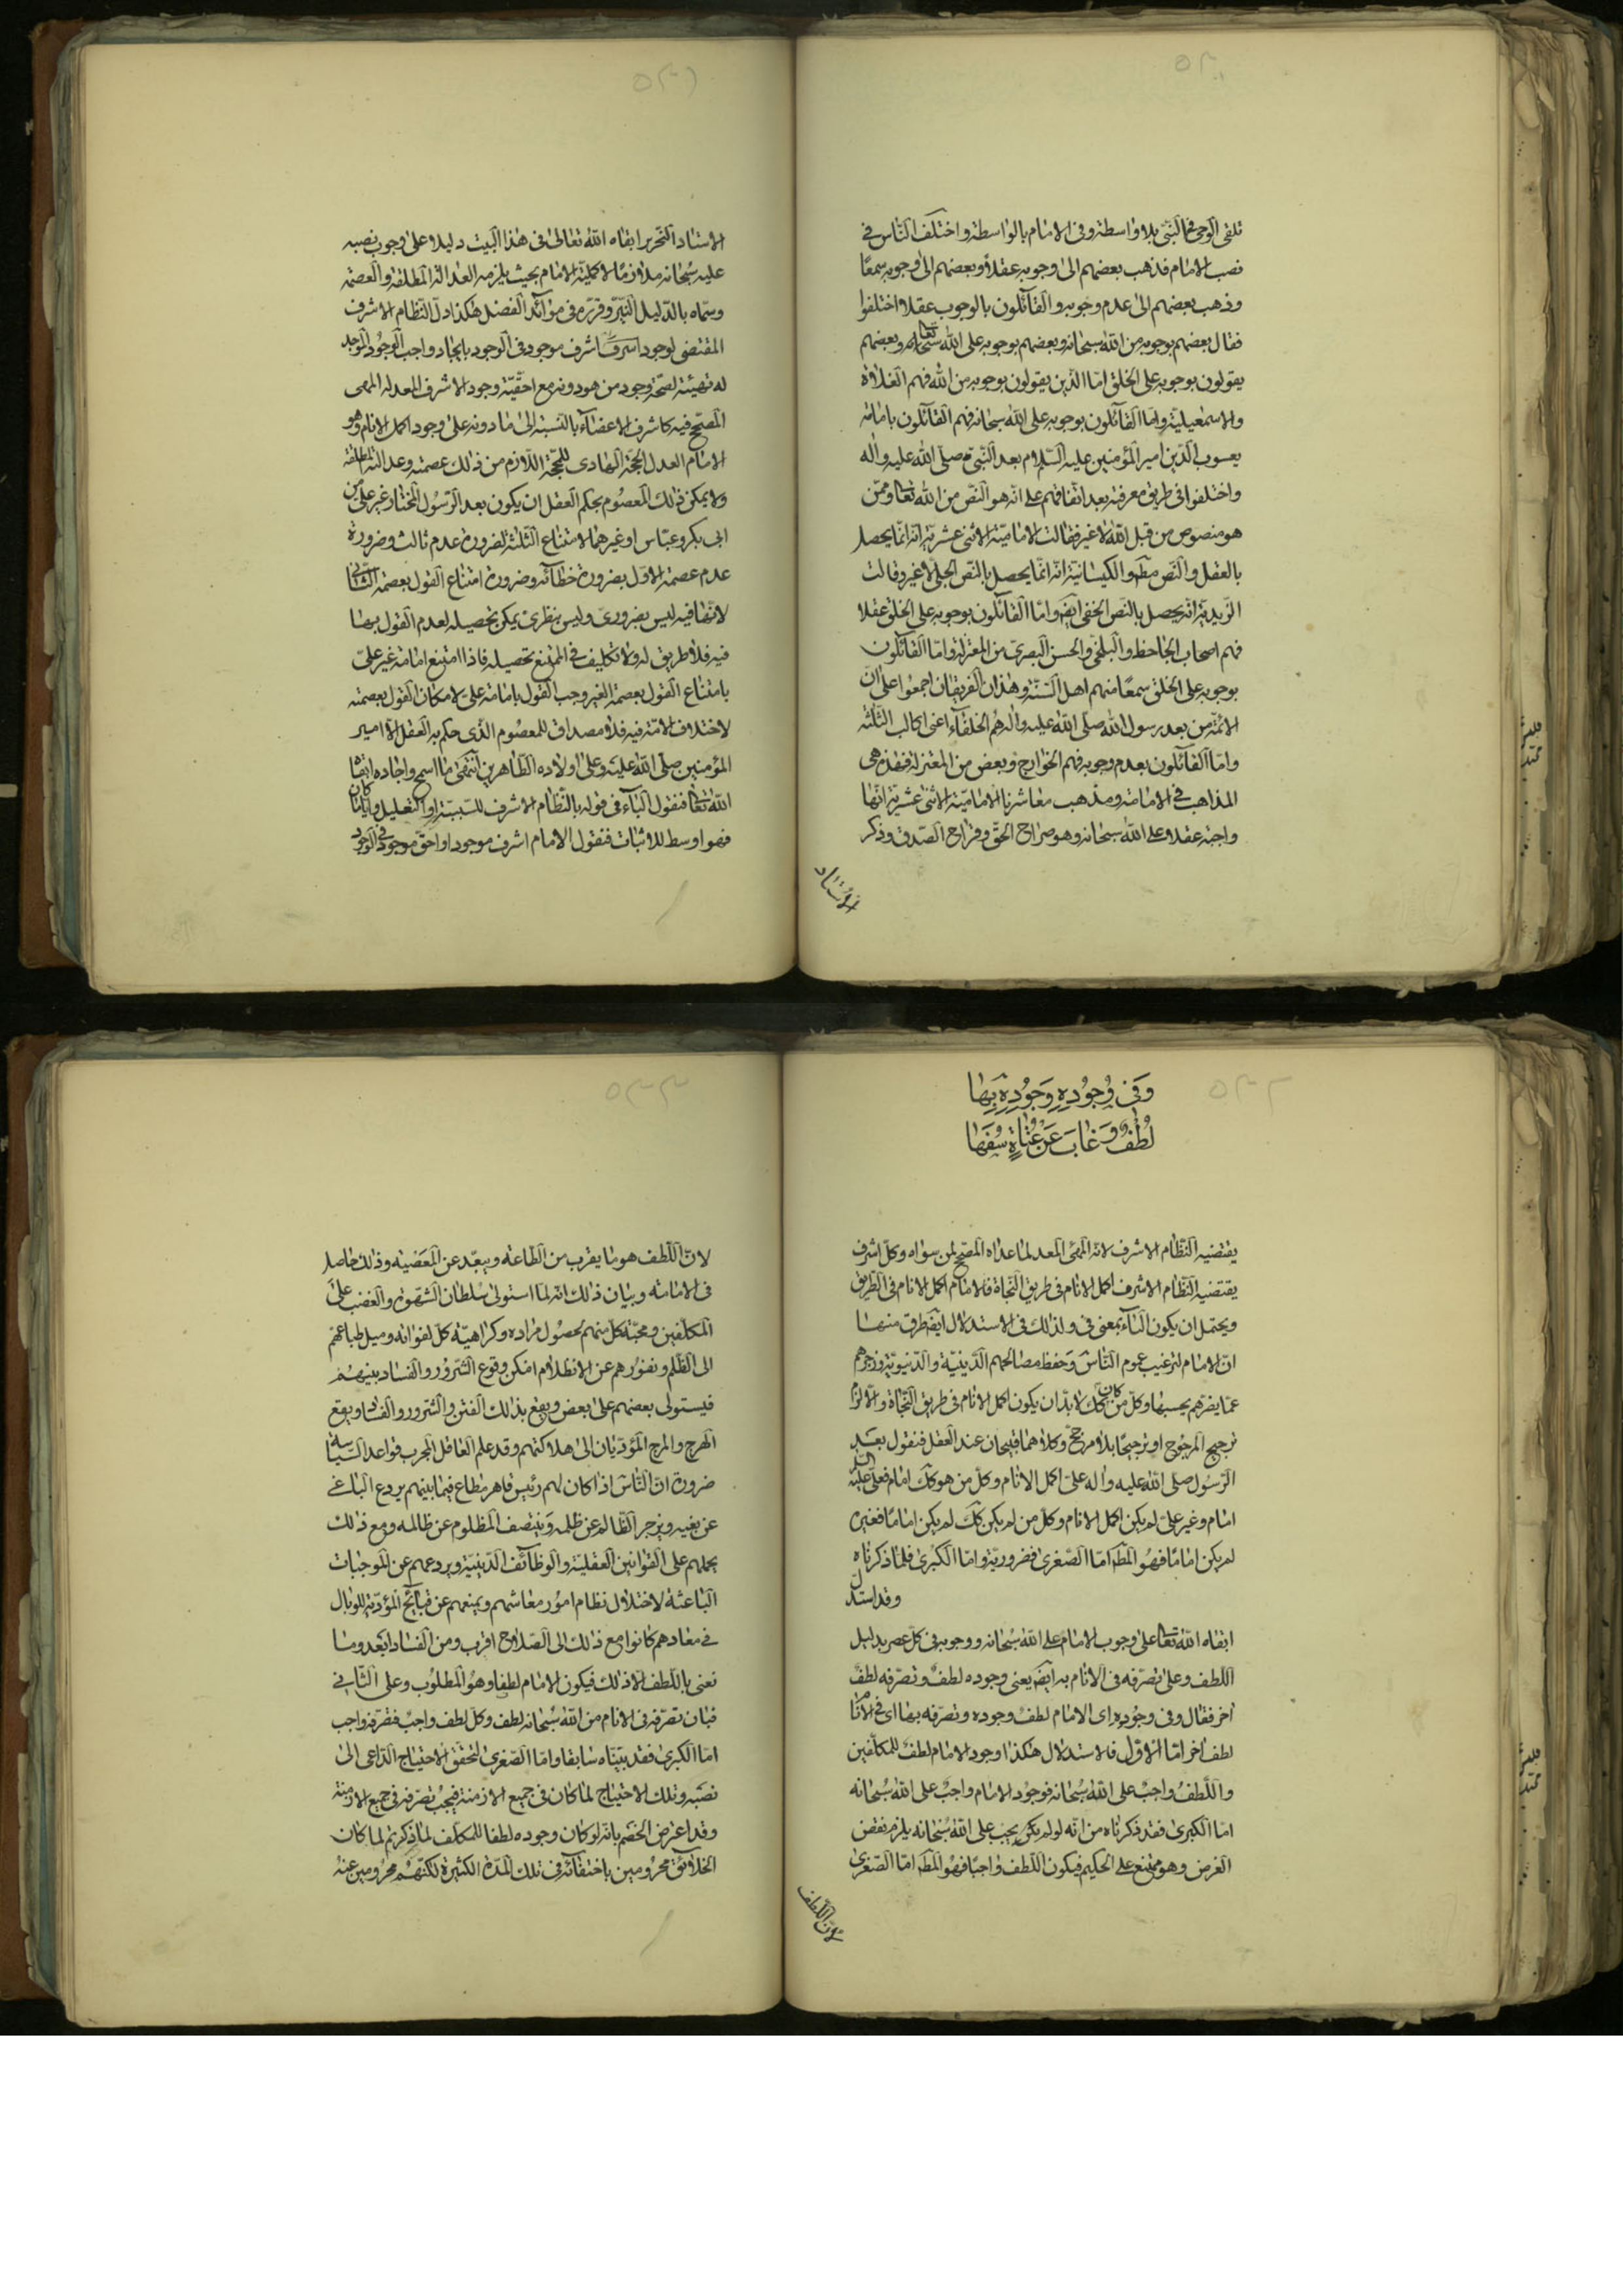 ٥٣٠
تلقى الوحى فالنبى بلا واسطة وفى الامام بالواسطة واختلف الناس فى
نصب الامام فذهب بعضهم الى وجوبه عقلاً وبعضهم الى وجوبه سمعًا
وذهب بعضهم الى عدم وجوبه والقائلون بالوجوب عقلا اختلفوا
فقال بعضهم بوجوبه من الله سبحانه وبعضهم بوجوبه على الله سبحانه وبعضهم
يقولون بوجوبه على الخلق امّا الّذين يقولون بوجوبه من الله فهم الغلاة
والاسمعيلية وامّا القائلون بوجوبه على الله سبحانه فهم القائلون بامامة
يعسوب الدّين امير المؤمنين عليه السّلام بعد النّبى صلّى الله عليه واله
واختلفوا فى طريق معرفته بعد اتفاقهم على انّه هو النّصّ من الله تعا وممّن
هو منصوص من قبل الله لا غير فقالت الاماميّة الاثنى عشرية انّه انّما يحصل
بالعقل والنّص مط والكيسانية انّه انّما يحصل بالنّص الجلى لا غير وقالت
الزّيديّة انه يحصل بالنّص الخفى ايض وامّا القائلون بوجوبه على الخلق عقلا
فهم اصحاب الجاحظ والبلخى والحسن البصرىّ من المعتزلة وامّا القائلون
بوجوبه على الخلق سمعًا منهم اهل السّنّة وهذان الفريقان اجمعوا على انّ
الائمّة من بعد رسول الله صلّى الله عليه واله هم الخلفاء اعنى اكالب الثّلثة
وامّا القائلون بعدم وجوبه فهم الخوارج وبعض من المعتزلة فهذه هى
المذاهب فى الامامة ومذهب معاشرنا الاماميّة الاثنى عشريّة انّها
واجبة عقلا على الله سبحانه وهو صراح الحقّ وقراح الصّدق وذكر
الاستاد
٥٣١
الاستاد النّحرير ابقاه الله تعالى فى هذا البيت دليلا على وجوب نصبه
عليه سبحانه ملازمًا لاكمليّة الامام بحيث يلزمه العدالة المطلقة والعصمة
وسمّاه بالدّليل النّيّر وقرّره فى موائد الفضل هكذا دلّ النّظام الاشرف
المقتضى لوجود اشرف اشرف موجود فى الوجود بايجاد واجب الوجود الموجد
له تهيئة لصحّة وجود من هو دونه مع احقّيّة وجود الاشرف المعدله المهى
المصحّح فيه كاشرف الاعضاء بالنّسبة الى ما دونه على وجود اكمل الانام وهو
الامام العدل الحجّة الهادى للمحجّة اللّازم من ذلك عصمته وعدالته المطلقة
ولا يمكن ذلك المعصوم بحكم العقل ان يكون بعد الرّسول المختار غير علىّ من
ابى بكر وعبّاس او غيرهما لامتناع الثّلثة لضرورة عدم ثالث وضرورة
عدم عصمة الاوّل بضرورة خطائه وضرورة امتناع القول بعصمة الثّانى
لانّها فيه ليس بضرورىّ وليس بنظرىّ يمكن تحصيله لعدم القول بها
فيه فلا طريق له ولا تكليف فى الممتنع تحصيله فاذا امتنع امامة غير علىّ
بامتناع القول بعصمة الغير وجب القول بامامة علىّ لامكان القول بعصمته
لاختلاف الامّة فيه فلا مصداق للمعصوم الّذى حكم به العقل الا امير
المؤمنين صلّى الله عليه وعلى اولاده الطّاهرين انتهى ما اسمح واجاد ابقاه
الله تعا فنقول الباء فى قوله بالنّظام الاشرف للسّببيّة او التّعليل وايّاما كان
فهو اوسط للاثبات فنقول الامام اشرف موجود او احقّ موجود فى الوجود
٥٣٢
وَفى وُجُودِهِ وَجُودِهِ بِهَا
لُطْفٌ وَغابَ عَنْ عُتاةٍ سُفَهَا
يقتضيه النّظام الاشرف لانّه المهيّ المعد لما عداه المصحّح لمن سواه وكلّ اشرف
يقتضيه النّظام الاشرف اكمل الانام فى طريق النّجاة فالامام اكمل الانام فى الطريق
ويحتمل ان يكون الباء بمعنى فى ولذلك فى الاستدلال ايض طرق منها
انّ الامام لترغيب عموم النّاس وحفظ مصالحهم الدّينيّة والدّنيويّة وزجرهم
عمّا يضرّهم بحسبها وكلّ من كان كك لا بدّ ان يكون اكمل الانام فى طريق النّجاة والّا لزم
ترجيح المرجوح او ترجيحًا بلا مرجّح وكلاهما قبيحان عند العقل فنقول بعد
الرّسول صلى الله عليه واله علىّ اكمل الانام وكلّ من هو كك امام فعلىّ عليه السلم
امام وغير علىّ لم يكن اكمل الانام وكلّ من لم يكن كك لم يكن امامًا فغيره
لم يكن امامًا فهو المط امّا الصّغرى فضروريّة وامّا الكبرى فلما ذكرناه
وقد استدلّ
ابقاه الله تعا على وجوب الامام على الله سبحانه ووجوبه فى كلّ عصر بدليل
اللطف وعلى تصرّفه فى الانام به ايض يعنى وجوده لطف وتصرّفه لطف
اخر فقال وفى وجوده اى الامام لطف وجوده وتصرّفه بها اى فى الانام
لطف اخر امّا الاوّل فالاستدلال هكذا وجود الامام لطف للمكلّفين
واللّطف واجبٌ على الله سبحانه فوجود الامام واجبٌ على الله سبحانه
امّا الكبرى فقد ذكرناه من انّه لو لم يكن يجب على الله سبحانه يلزم نقض
الغرض وهو ممتنع على الحكيم فيكون اللّطف واجبًا فهو المط امّا الصّغرى
لانّ اللّطف
٥٣٣
لانّ اللّطف هو ما يقرب من الطّاعة ويبعّد عن المعصية وذلك حاصل
فى الامامة وبيان ذلك انّه لمّا استولى سلطان الشّهوة والغضب على
المكلّفين ومحبّة كلّ منهم لحصول مراده وكراهيّة كلّ لفواته وميل طباعهم
الى الظّلم ونفورهم عن الانظلام امكن وقوع الشّرور والفساد بينهم
فيستولى بعضهم على بعض ويقع بذلك الفتن والشّرور والفساد ويقع
الهرج والمرج المؤدّيان الى هلاكتهم وقد علم العاقل المجرب قواعد السّياسة
ضرورة انّ النّاس اذا كان لهم رئيس قاهر مطاع فيما بينهم يردع الباغى
عن بغيه ويزجر الظّالم عن ظلمه وينتصف المظلوم عن ظالمه ومع ذلك
يحملهم على القوانين العقلية والوظائف الدّينيّة ويردعهم عن الموجبات
الباعثة لاختلال نظام امور معاشهم ويمنعهم عن قبائح المؤدّية للوبال
فى معادهم كانوا مع ذلك الى الصّلاح اقرب ومن الفساد ابعد وما
نعنى باللّطف الا ذلك فيكون الامام لطفا وهو المطلوب وعلى الثّانى
فبان تصرّفه فى الانام من الله سبحانه لطف وكلّ لطف واجبٌ فتصرّفه واجب
امّا الكبرى فقد بيّنّاه سابقا وامّا الصّغرى لتحقّق الاحتياج الدّاعى الى
نصبه وتلك الاحتياج لما كان فى جميع الازمنة فيجب تصرّفه فى جميع الازمنة
وقد اعترض الخصم بانّه لو كان وجوده لطفا للمكلّف لما ذكرتم لما كان
الخلائق محرومين باختفائه فى تلك المدّة الكثيرة لكنّهم محرومين عنه